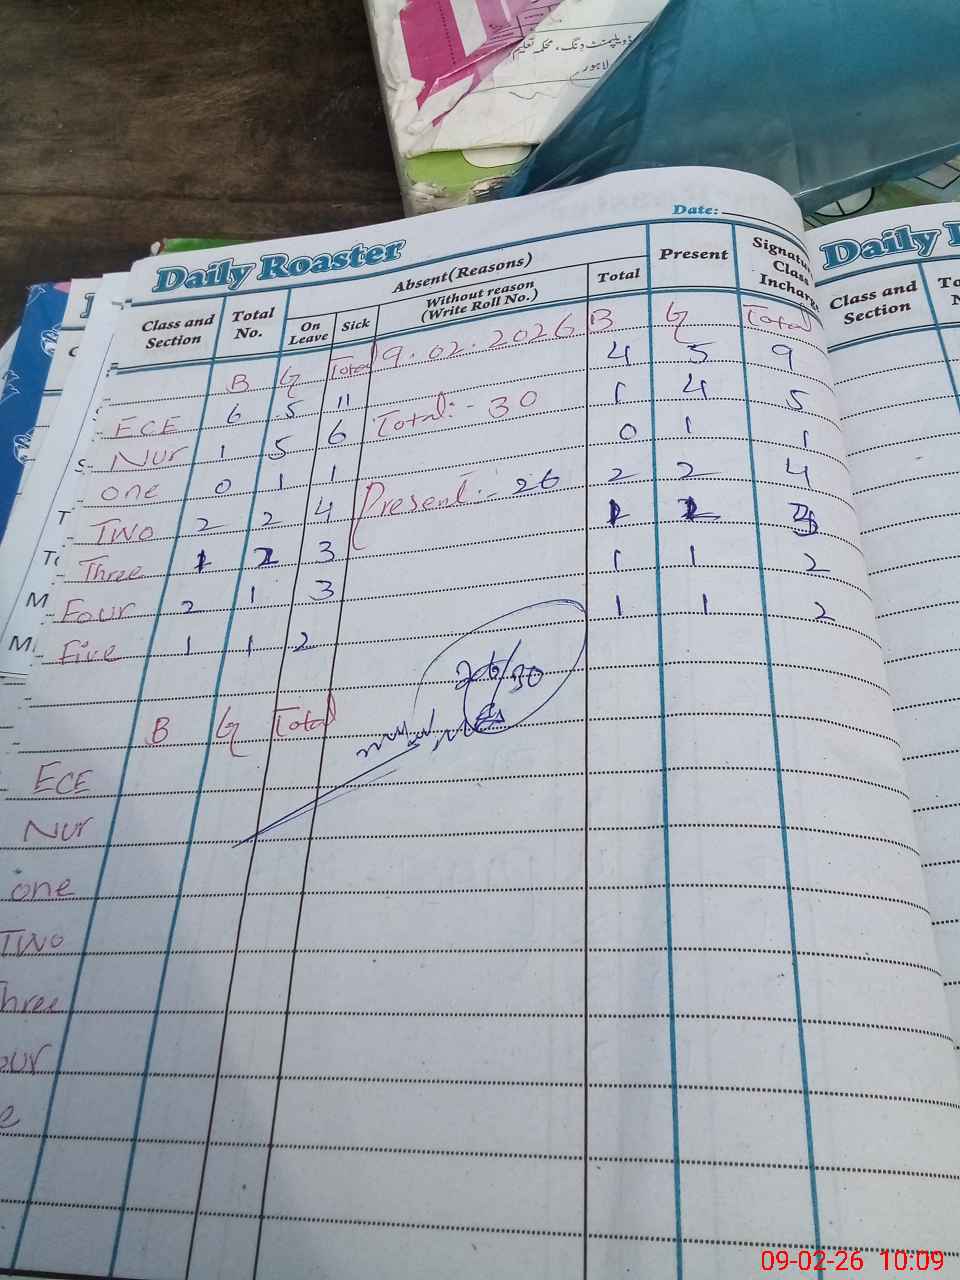 ڈویلپمنٹ ونگ، محکمہ تعلیم
لاہور
Date:
Daily Roaster
Class and Section
Total No.
Absent (Reasons)
On Leave
Sick
Without reason (Write Roll No.)
Total
Present
Signature Class Incharge
B G Total 9.02.2026 B G Total
ECE 6 5 11 4 5 9
Nur 1 5 6 Total:- 30 1 4 5
one 0 1 1 0 1 1
Two 2 2 4 Present:- 26 2 2 4
Three 1 2 3 1 2 3
Four 2 1 3 1 1 2
Five 1 1 2 1 1 2
26/30
B G Total
ECE
Nur
one
Two
hree
our
e
Daily
Class and Section
To
09-02-26 10:09